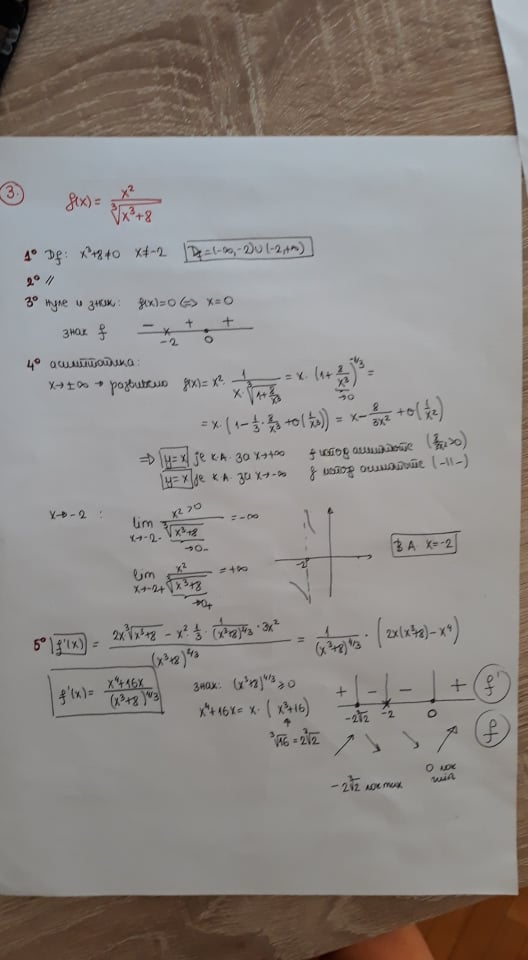 3.
f(x) = x² / ∛(x³+8)
1° Df: x³+8≠0 x≠-2 Df=(-∞,-2)∪(-2,+∞)
2° //
3° нуле и знак: f(x)=0 (=) x=0
знак f − + +
-2 0
4° асимптотика:
x→±∞ → развијемо f(x) = x² · 1 / (x·∛(1+8/x³)) = x · (1+8/x³)^(-1/3) =
→0
= x · (1 - 1/3 · 8/x³ + o(1/x³)) = x - 8/(3x²) + o(1/x²)
⇒ y=x је к.А. за x→+∞ f испод асимптоте (8/3x²>0)
y=x је к.А. за x→-∞ f испод асимптоте (-11-)
x→-2: lim x→-2- x²>0 / ∛(x³+8) = -∞
→0-
-2
В.А. x=-2
lim x→-2+ x² / ∛(x³+8) = +∞
→0+
5° f'(x) = (2x∛(x³+8) - x² · 1/3 · 1/(x³+8)^(2/3) · 3x²) / (x³+8)^(2/3) = 1/(x³+8)^(4/3) · (2x(x³+8) - x⁴)
f'(x) = (x⁴+16x) / (x³+8)^(4/3)
знак: (x³+8)^(4/3) ≥0
x⁴+16x = x · (x³+16)
∛16 = 2∛2
+ − − + f'
-2∛2 -2 0
f
-2∛2 лок max
0 лок min